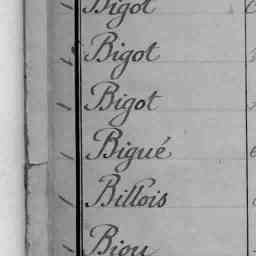 Bigot
Bigot
Bigot
Bigué
Billois
Biou